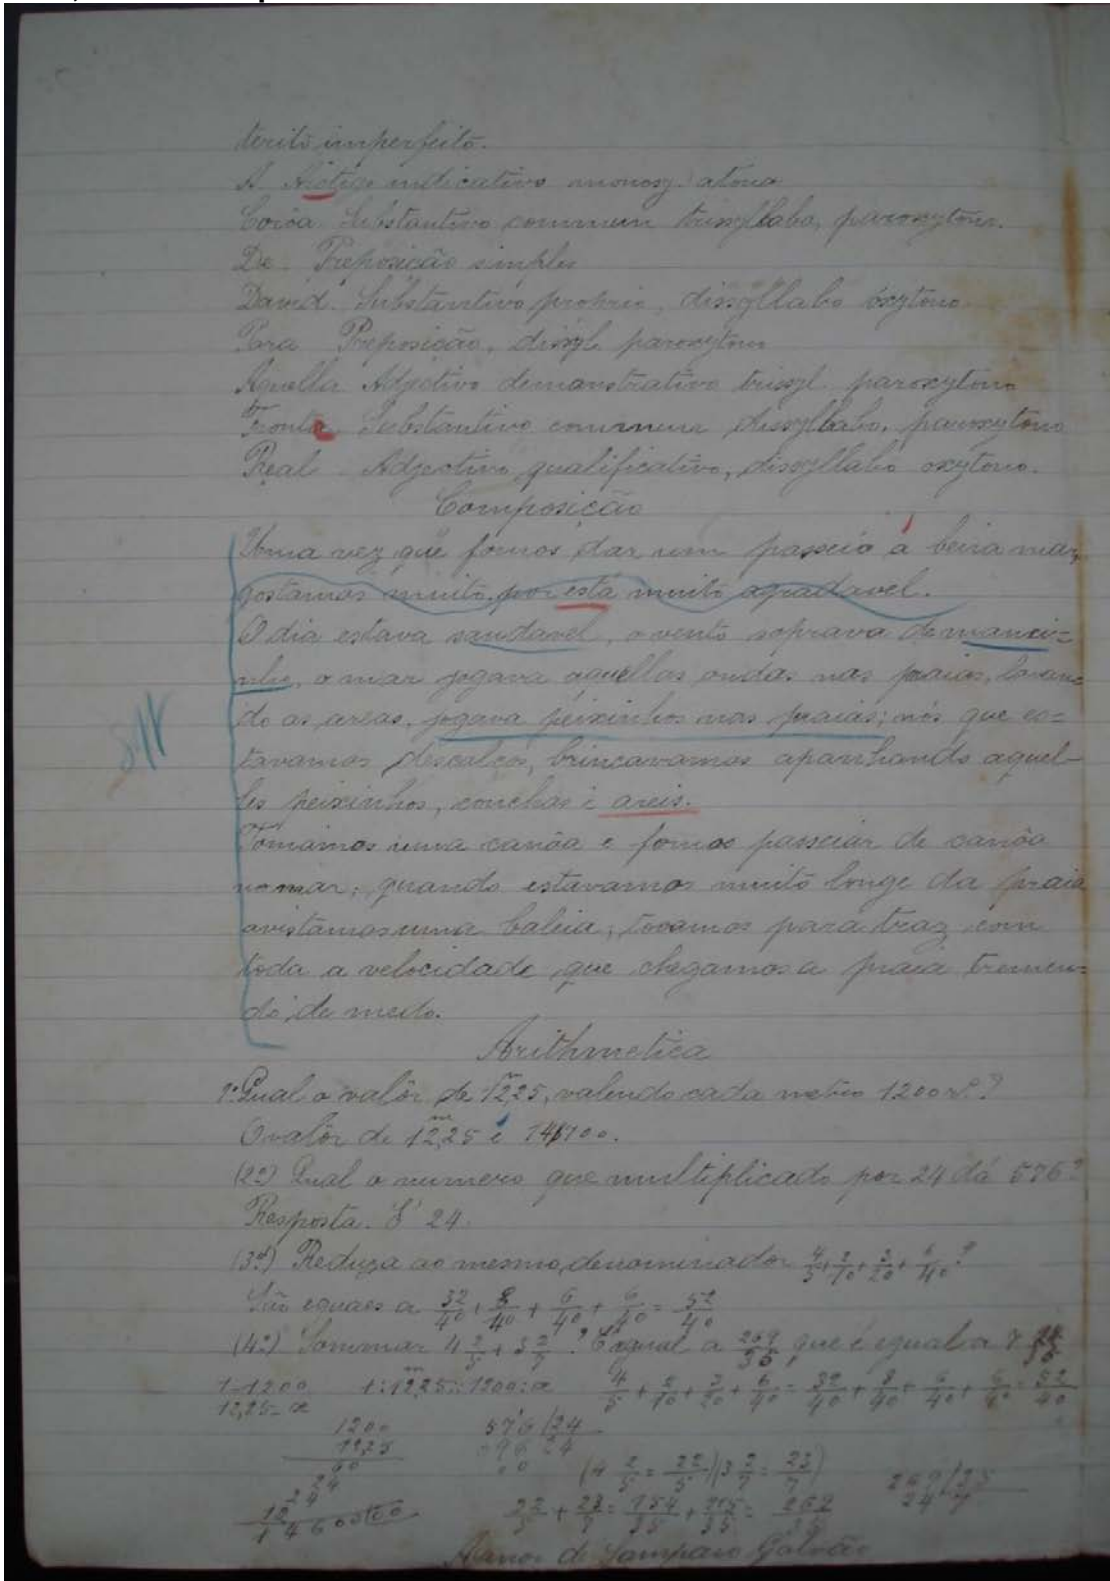 terito imperfeito.
A Artigo indicativo monosy. atona
Corôa. Substantivo commum trissyllabo, paroxytono.
De. Preposição simples
David. Substantivo proprio, dissyllabo óxytono
Para Preposição, dissyl. paroxytono
Aquella Adjectivo demanstrativo trissyl. paroxytono
Fronte Substantivo commum dissyllabo, paroxytono
Real. Adjectivo qualificativo, dissyllabo oxytono.
Composição
Uma vez que fomos dar um passeio á beira mar,
gostamos muito, por está muito agradavel.
O dia estava saudavel, o vento soprava de mansi=
nho, o mar jogava aquellas ondas nas praias, lavan=
do as areas, jogava peixinhos nas praias; nós que es=
tavamos descalços, brincavamos apanhando aquel-
les peixinhos, conchas i areis.
Tomámos uma canôa e fomos passeiar de canôa
no mar; quando estavamos muito longe da praia
avistámos uma baleia; tocamos para traz com
toda a velocidade que chegamos a praia tremen=
do de medo.
Arithmetica
1ª Qual o valôr de 12,25, valendo cada metro 1200 rs?
O valôr de 12,25 é 14$700.
(2ª) Qual o numero que multiplicado por 24 dá 576?
Resposta. É 24.
(3ª) Reduza ao mesmo denominador 4/5 + 2/10 + 3/20 + 6/40?
São eguaes a 32/40 + 8/40 + 6/40 + 6/40 = 52/40
(4ª) Sommar 4 2/5 + 3 2/7? É egual a 269/35, que é egual a 7 24/35
1-1200 1:12,25::1200:x 4/5 + 2/10 + 3/20 + 6/40 = 32/40 + 8/40 + 6/40 + 6/40 = 52/40
12,25-x
1200 576/24
1225 096 24
60 00
24 (4 2/5 = 22/5)(3 2/7 = 23/7) 269/35
24 24 7
12 22/5 + 23/7 = 154/35 + 115/35 = 269/35
de Sampaio Galvão